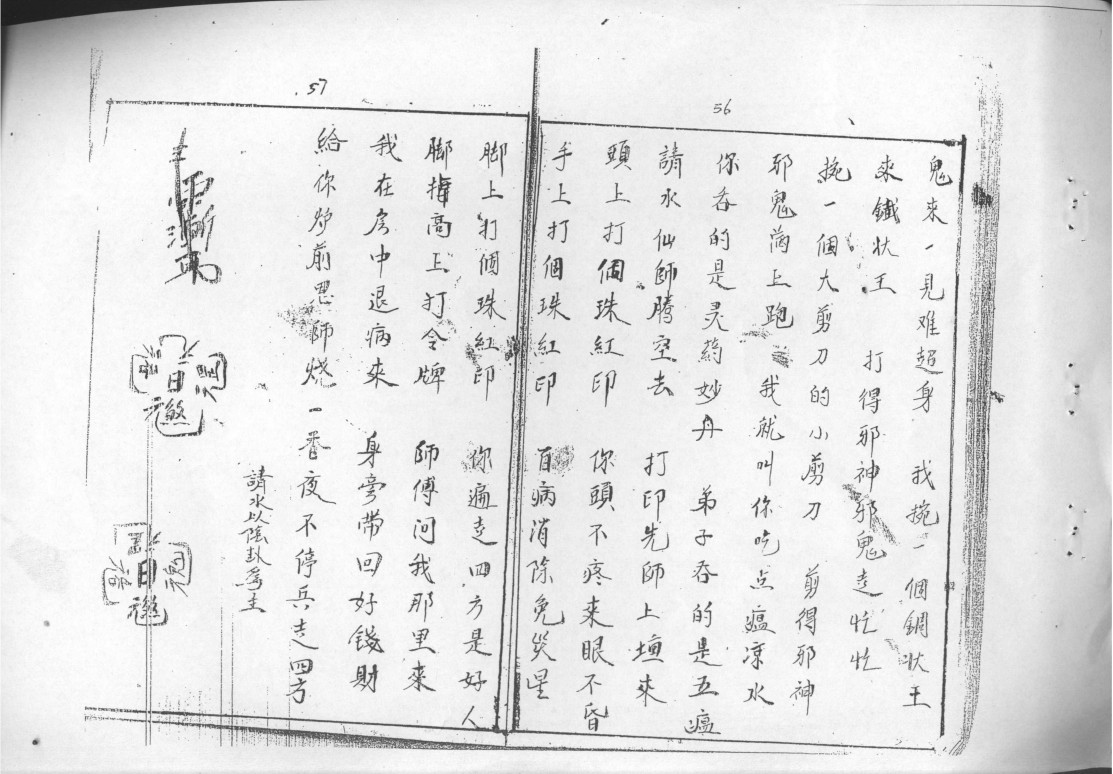 56
鬼來一見难超身 我挽一個鋼状王
來鐵状王 打得邪神邪鬼走忙忙
挽一個大剪刀的小剪刀 剪得邪神
邪鬼滿上跑 我就叫你吃点瘟凉水
你吞的是灵葯妙丹 弟子吞的是五瘟
請水仙師腾空去 打印先師上壇來
頭上打個珠紅印 你頭不疼來眼不昏
手上打個珠紅印 百病消除免災星
57
脚上打個珠紅印 你遍走四方是好人
脚指高上打令牌 師傅问我那里來
我在房中退病來 身旁带回好錢財
給你炉前恩師燒 一香夜不停兵走四方
請水以陰卦為主